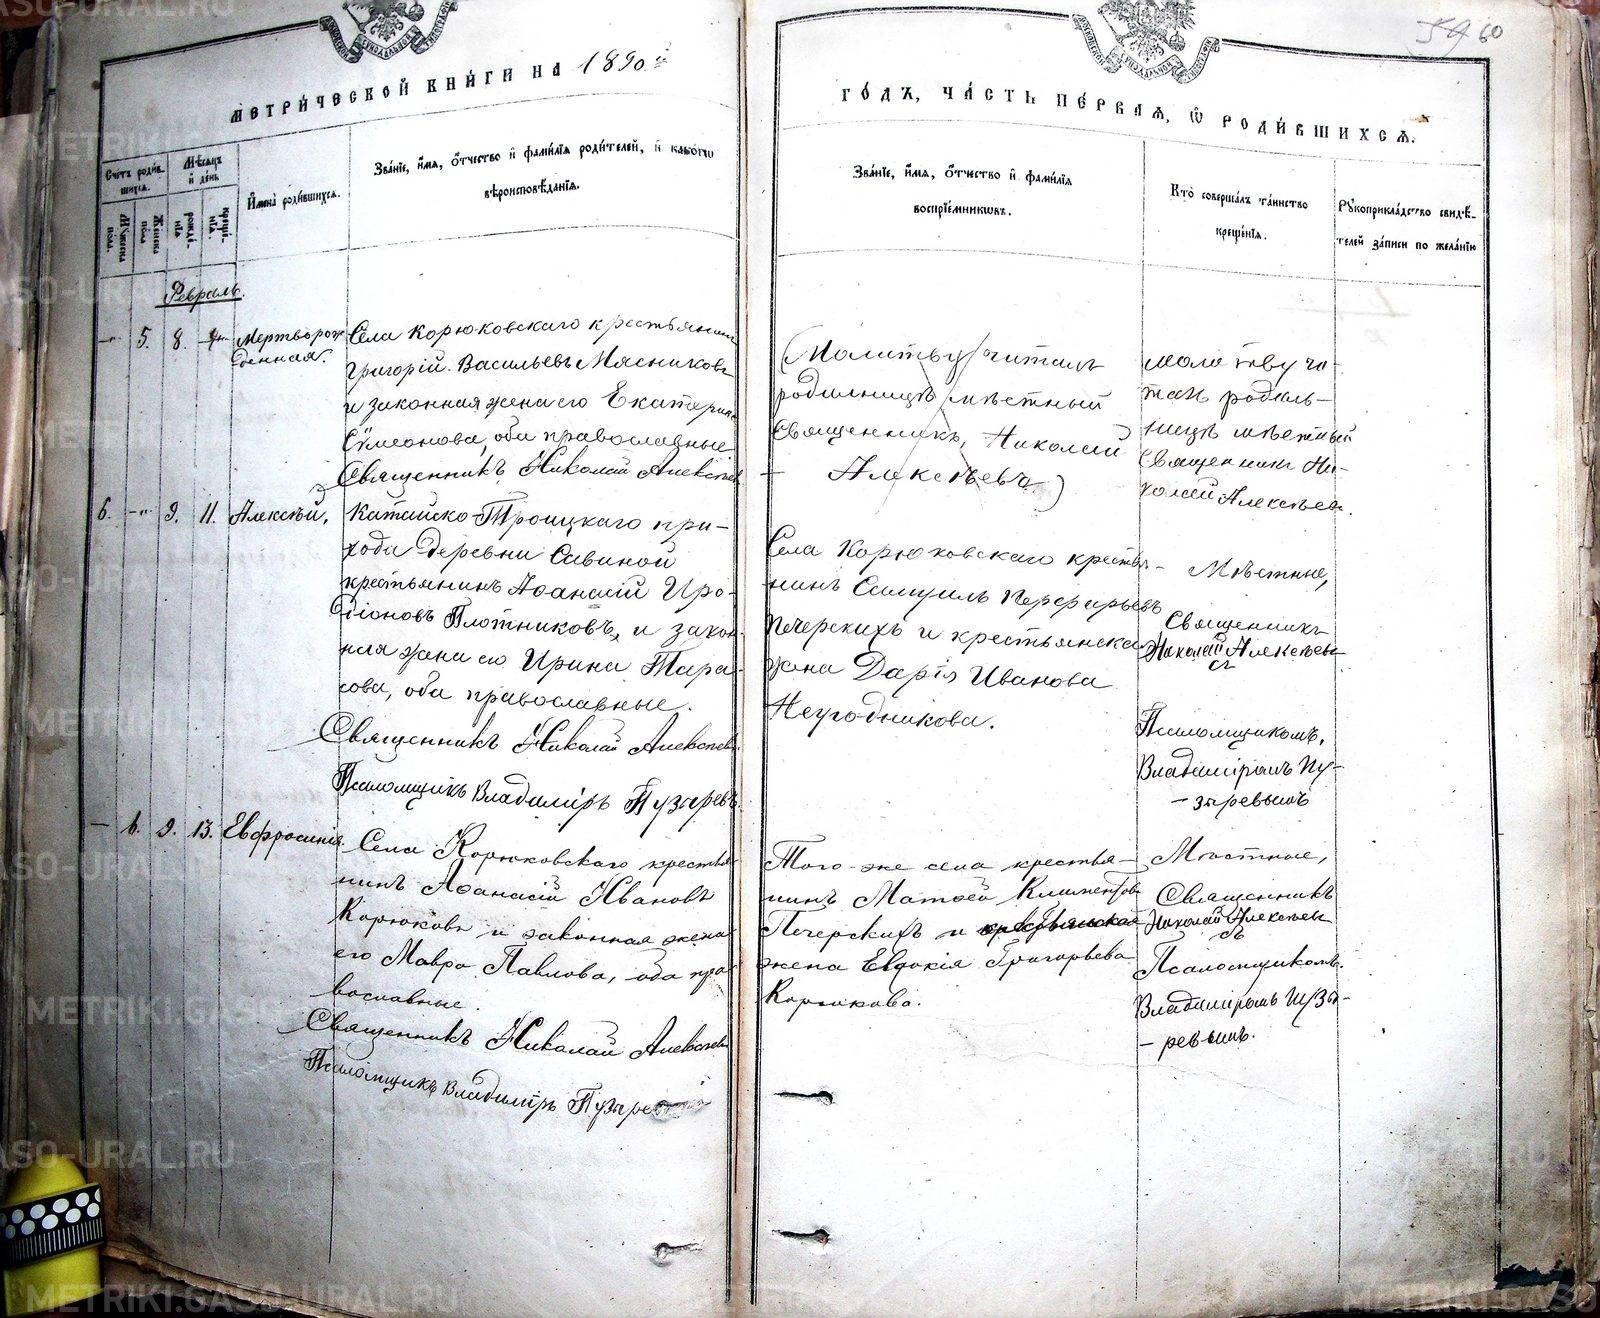 МЕТРИ́ЧЕСКОЙ КНИ́ГИ НА 1890й
ГО́ДЪ, ЧА́СТЬ ПЕ́РВАЯ, Ѽ РОДИ́ВШИХСЯ.
59 60
Сче́тъ роди́в-
шихся.
Му́жеска по́ла.
Же́нска по́ла.
Мѣ́сяцъ
и҆ де́нь
рожде́-
нїѧ
креще́-
нїѧ.
И҆мена̀ роди́вшихся.
Зва́нїе, и҆́мя, ѻ҆́тчество и҆ фами́лїя роди́телей, и҆ како́гѡ
вѣроисповѣ́данїя.
Зва́нїе, и҆́мя, ѻ҆́тчество и҆ фами́лїя
воспрїе́мникѡвъ.
Кто̀ соверша́лъ та́инство
креще́нїя.
Рꙋкоприкла́дство свидѣ́-
телей за́писи по жела́нїю
Февраль.
-„- 5. 8. Мертворож
денная.
Села Корюковскаго крестьянин
Григорій Васильевъ Мясниковъ
и законная жена его Екатерина
Сѵмеонова, оба православные.
Священникъ Николай Алексѣев
(Молитву читалъ
родильницѣ мѣстный
Священникъ, Николай
- Алексѣевъ)
молитву чи-
талъ родиль-
ницѣ мѣстный
Священникъ Ни-
колай Алексѣев.
6. -„- 9. 11. Алексѣй,
Катайско-Троицкаго при-
хода деревни Савиной
крестьянинъ Аѳанасій Иро-
діоновъ Плотниковъ, и закон-
ная жена его Ирина Тара-
сова, оба православные.
Священникъ Николай Алексѣевъ
Псаломщикъ Владиміръ Пузыревъ.
Села Корюковскаго крестья-
нинъ Самуилъ Перфирьевъ
Печерскихъ и крестьянская
жена Дарія Иванова
Неугодникова.
Мѣстные,
Священникъ
Николай Алексѣевъ
съ
Псаломщикомъ,
Владиміромъ Пу-
-зыревымъ
— 6. 9. 13. Евфросинія.
Села Корюковскаго крестья
нинъ Аѳанасій Ивановъ
Корюковъ и законная жена
его Мавра Павлова, оба пра
вославные.
Священникъ Николай Алексѣевъ
Псаломщикъ Владиміръ Пузыре
Того-же села крестья-
нинъ Матѳей Климентовъ
Печерскихъ и крестьянская
жена Евдокія Григорьева
Корюкова.
Мѣстные,
Священникъ
Николай Алексѣевъ
съ
Псаломщикомъ.
Владиміромъ Пузы-
-ревымъ.
METRIKI.GASO-URAL.RU